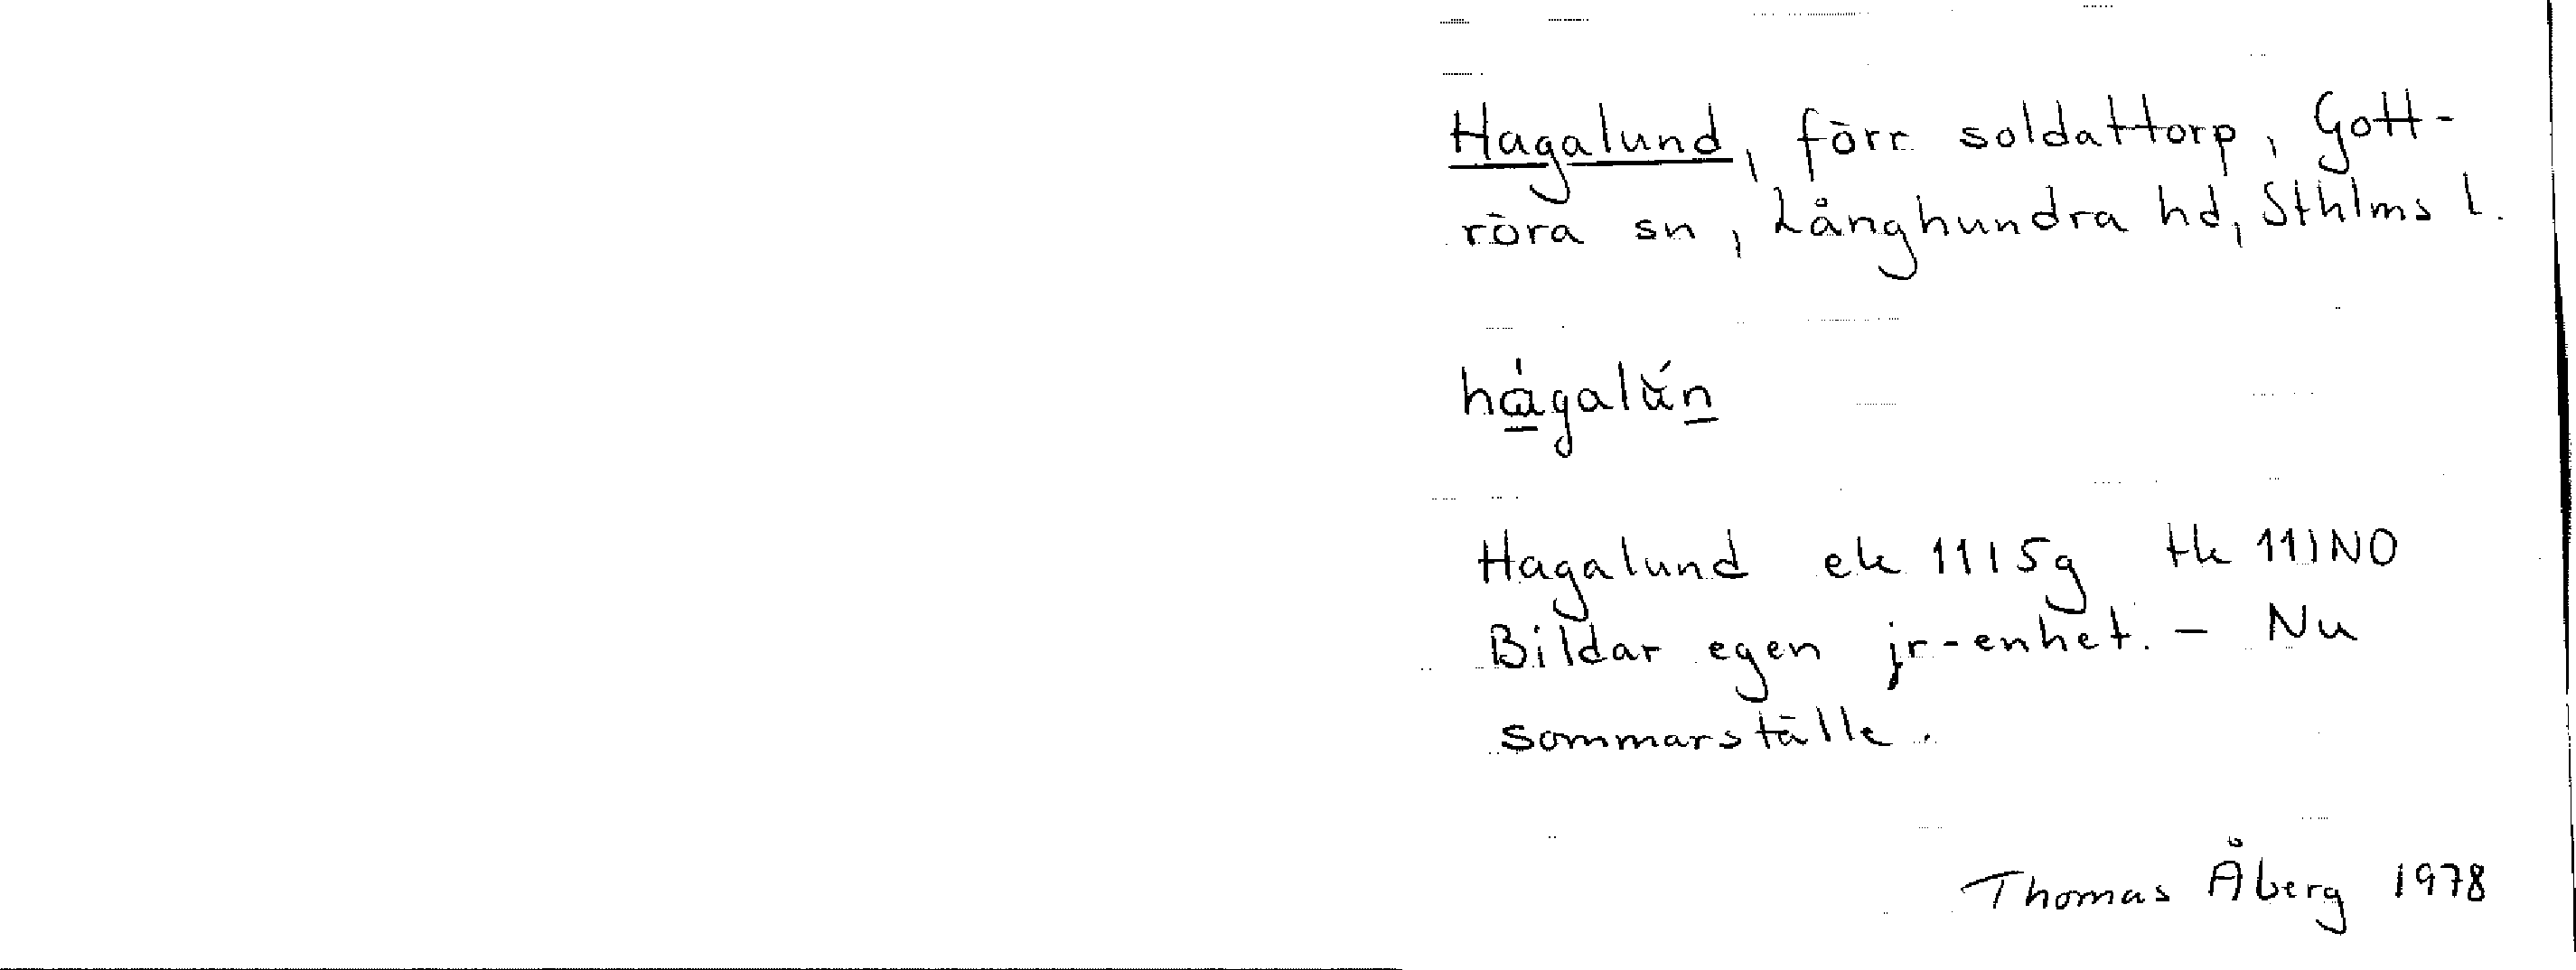 Hagalund, förr soldattorp, Gott-
röra sn, Långhundra hd, Sthlms l.
hágalún
Hagalund ek 11I5g tk 11INO
Bildar egen jr-enhet. - Nu
sommarställe.
Thomas Åberg 1978